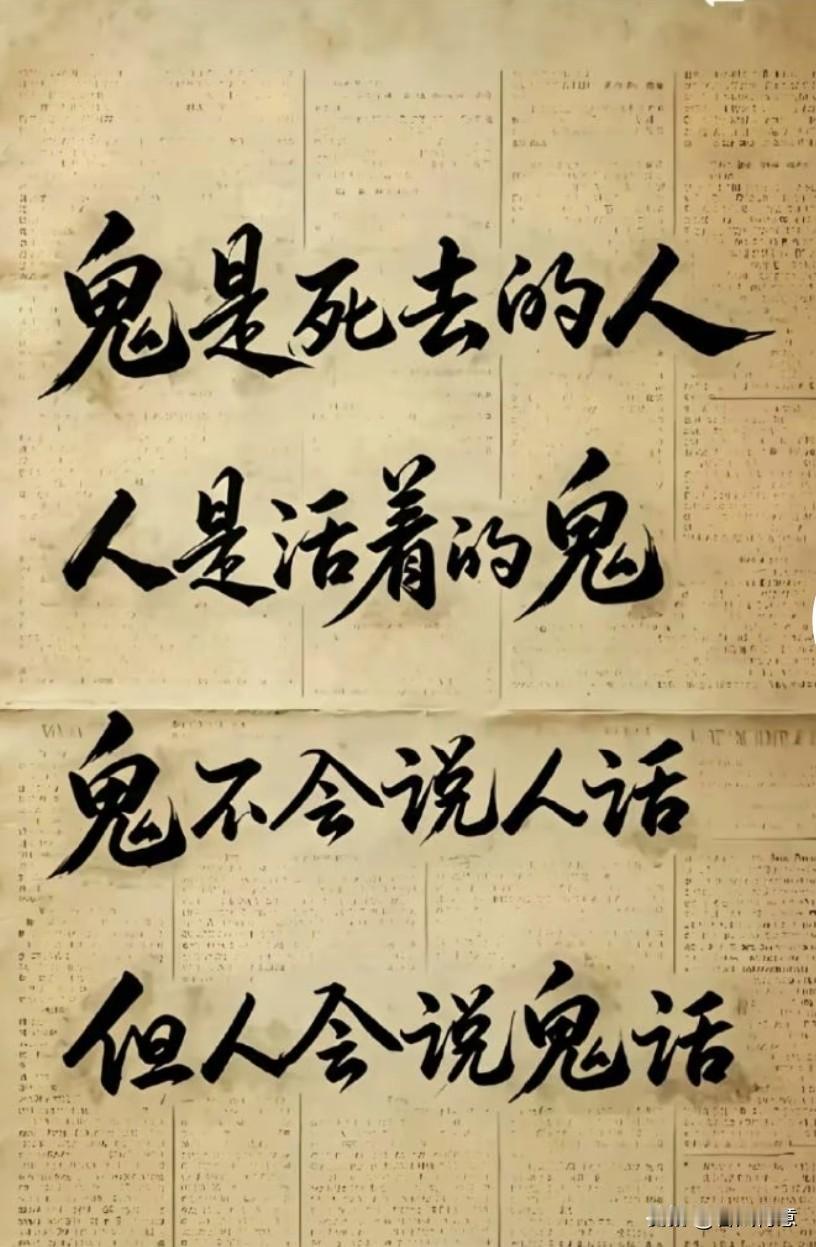 鬼是死去的人
人是活着的鬼
鬼不会说人话
但人会说鬼话